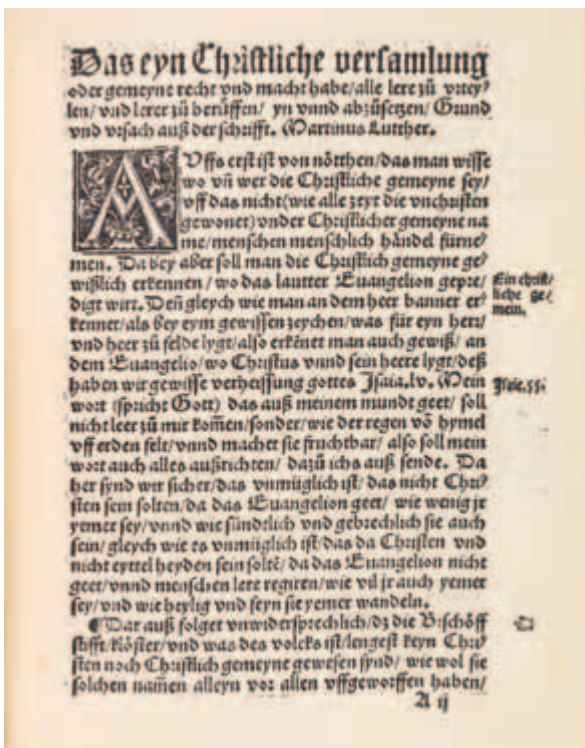 Das eyn Christliche versamlung
oder gemeyne recht vnd macht habe/alle lere zů vrtey⸗
len/vnd lerer zů berůffen/ yn vnnd abzůsetzen/ Grund
vnd vrsach auß der schrifft. Martinus Lutther.
AVffs erst ist von nötthen/das man wisse
wo vñ wer die Christliche gemeyne sey/
vff das nicht(wie alle zeyt die vnchristen
gewonet)vnder Christlicher gemeyne na
me/menschen menschlich händel fürne⸗
men. Da bey aber soll man die Christlich gemeyne ge⸗
wißlich erkennen/wo das lautter Euangelion gepre⸗
digt wirt. Deñ gleych wie man an dem heer banner er⸗
kennet/als bey eym gewissen zeychen/was für eyn herr/
vnd heer zů felde lygt/also erkēnet man auch gewiß/ an
dem Euangelio/wo Christus vnnd sein heere lygt/deß
haben wir gewisse verheissung gottes Jsaia.lv. Mein
wort (spricht Gott) das auß meinem mundt geet/ soll
nicht leer zů mir kom̃en/sonder/wie der regen vō hymel
vff erden felt/vnnd machet sie fruchtbar/ also soll mein
wort auch alles außrichten/ dazů ichs auß sende. Da
her synd wir sicher/das vnmüglich ist/das nicht Chri⸗
sten sein solten/da das Euangelion geet/ wie wenig jr
yemer sey/vnnd wie sündtlich vnd gebrechlich sie auch
sein/gleych wie es vnmüglich ist/das da Christen vnd
nicht eyttel heyden sein soltē/da das Euangelion nicht
geet/vnnd menschen lere regiren/wie vil jr auch yemer
sey/vnd wie heylig vnd feyn sie yemer wandeln.
¶Dar auß folget vnwidersprechlich/dz die Bischöff
stifft/klöster/vnd was des volcks ist/lengest keyn Chri⸗
sten noch Christlich gemeyne gewesen synd/ wie wol sie
solchen nam̃en alleyn vor allen vffgeworffen haben/
A ij
Ein christ⸗
liche ge⸗
mein.
Jsaie.55.